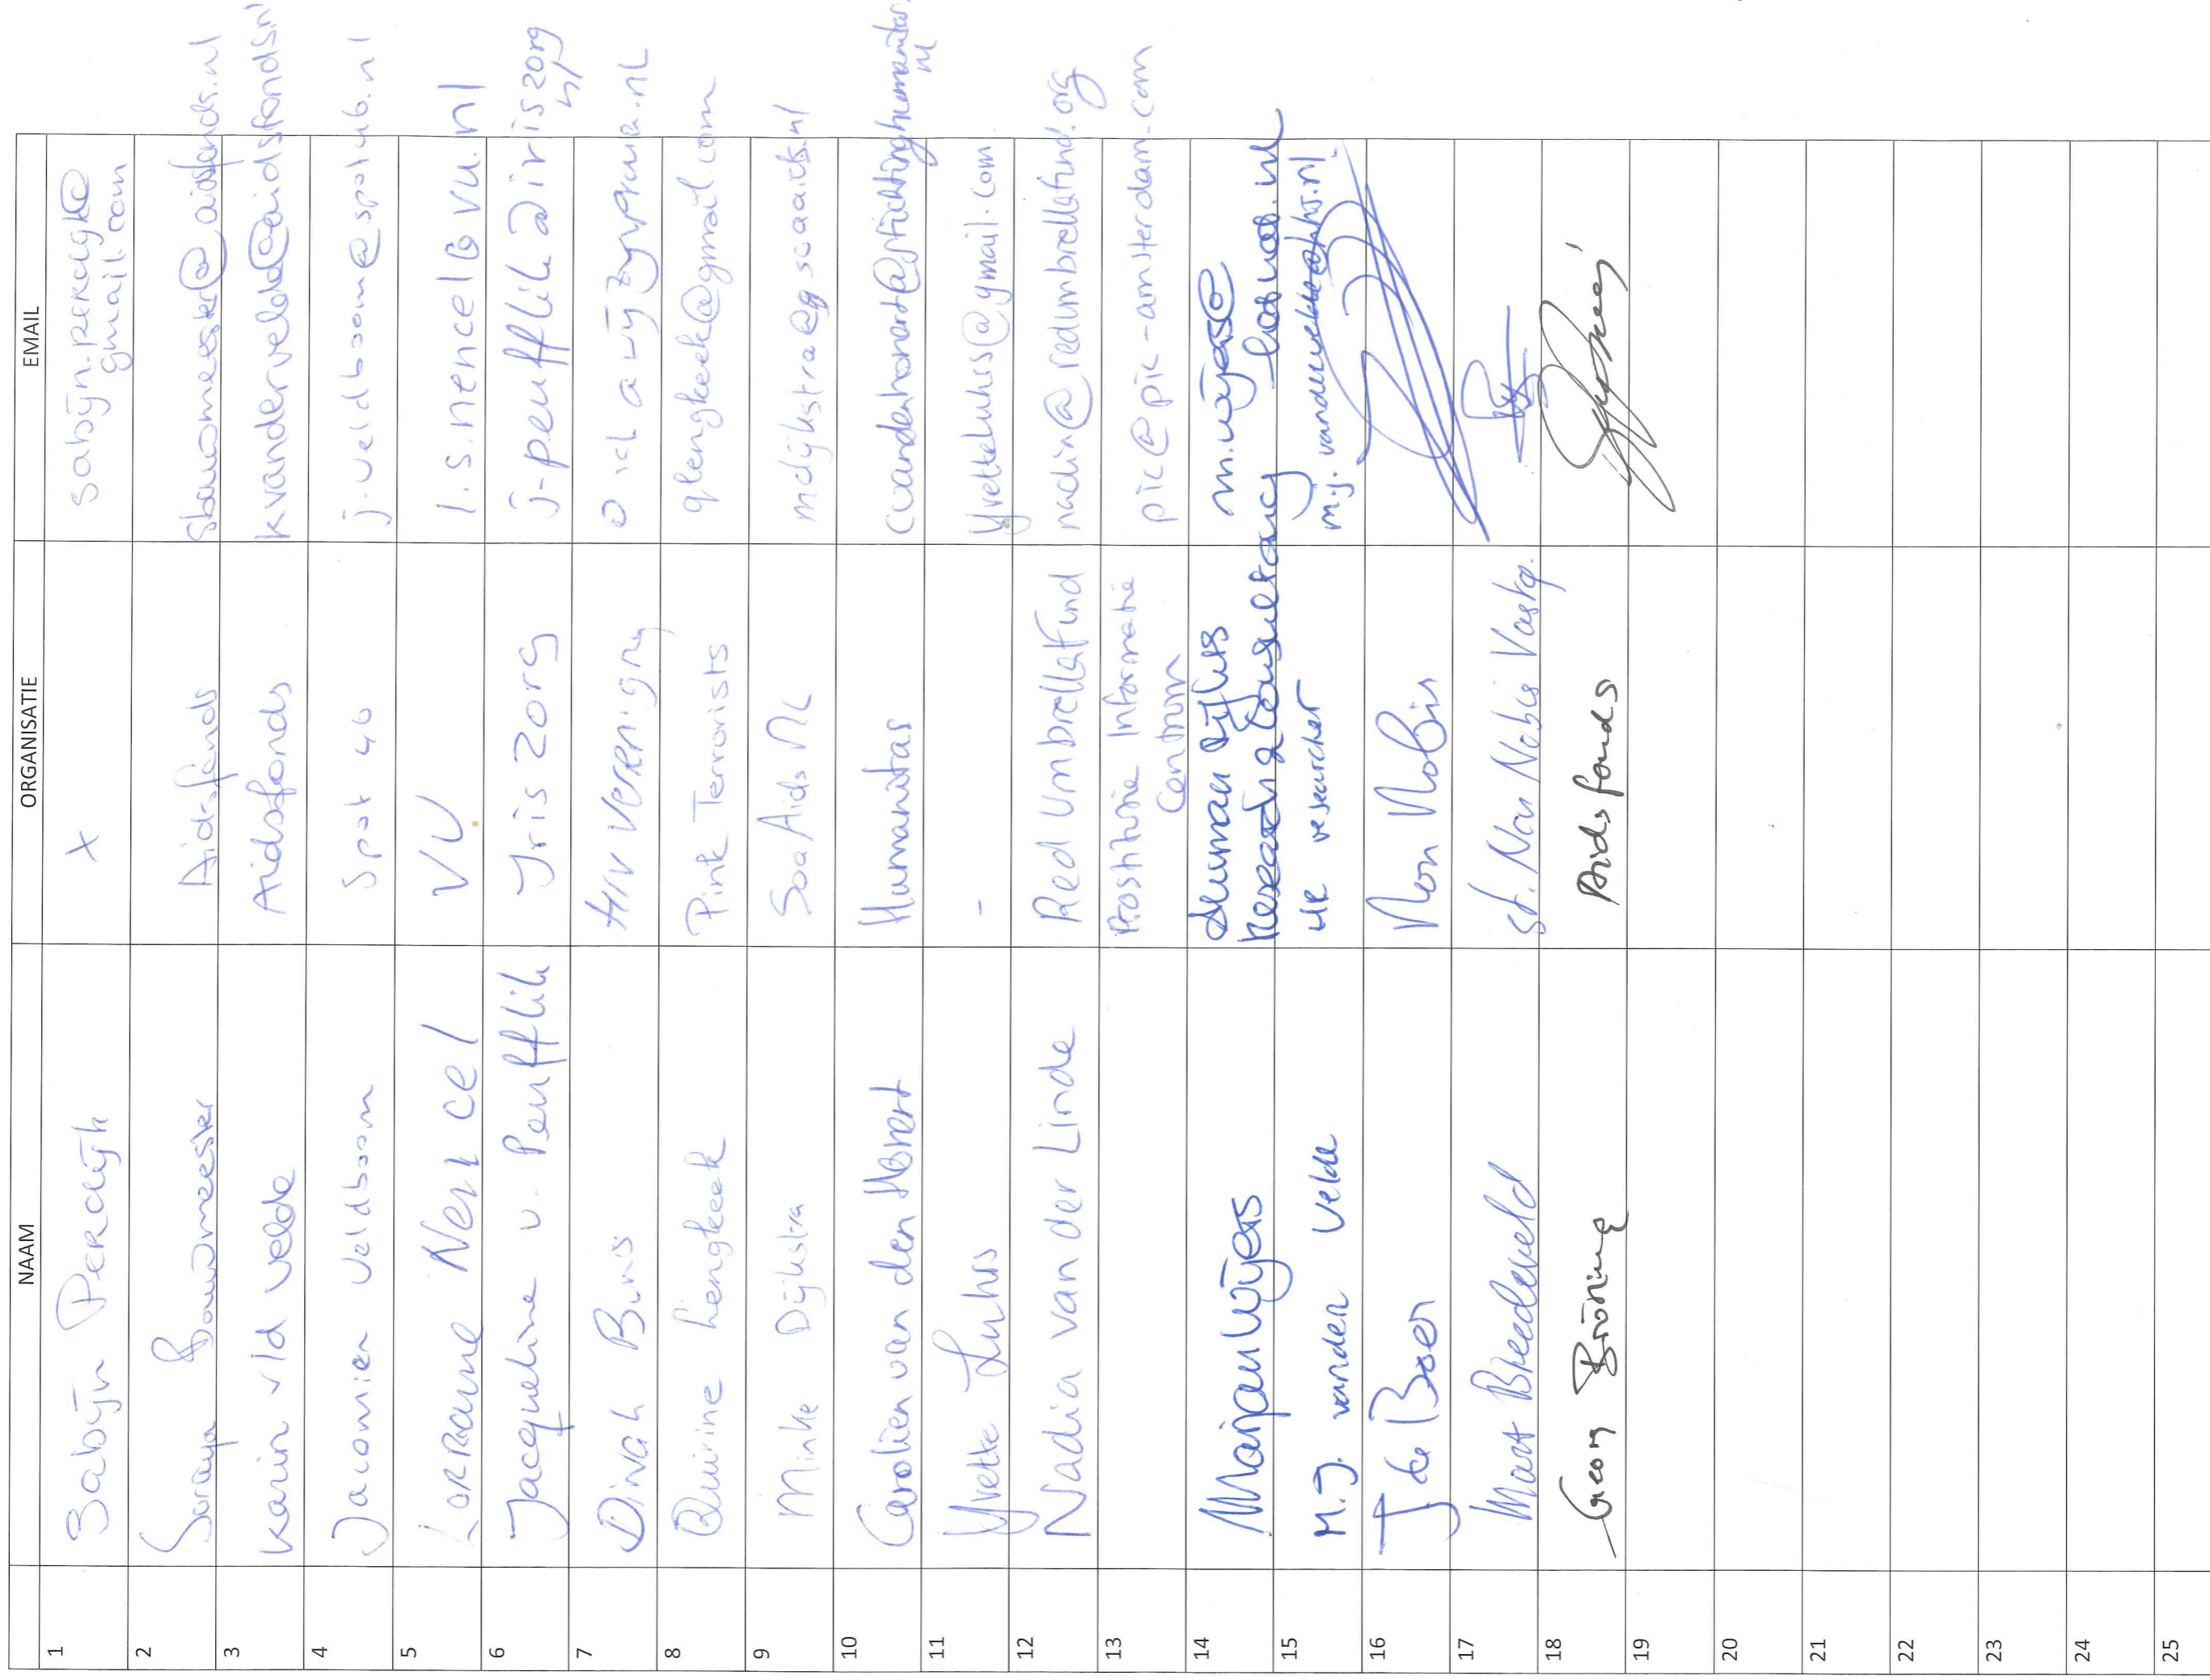 NAAM ORGANISATIE EMAIL
1 Sabijn Perdijk X sabijn.perdijk@
gmail.com
2 Soraya Bouwmeester Aidsfonds sbouwmeester@aidsfonds.nl
3 Karin vld Velde Aidsfonds kvandervelde@aidsfonds.nl
4 Jacomien Veldboom Spot 46 j.veldboom@spot46.nl
5 Lorraine Nencel VU l.s.nencel@vu.nl
6 Jacqueline v. Peufflik Iris Zorg j-peufflik@iriszorg
nl
7 Dinah Bons HIV Vereniging
8 Quirine Lengkeek Pink Terrorists qlengkeek@gmail.com
9 Minke Dijkstra Soa Aids NL mdijkstra@soaaids.nl
10 Carolien van den Honert Humanitas cvandenhonert@stichtinghumanitas.
nl
11 Yvette Luhrs - yvetteluhrs@gmail.com
12 Nadia van der Linde Red Umbrella Fund nadia@redumbrellafund.org
13 Prostitutie Informatie pic@pic-amsterdam.com
Centrum
14 Marjan Wijers Human Rights m.wijers@
Research & Consultancy hetnet.nl
15 M.J. vander Velde HR researcher
16 J de Boer Non Nobis
17 Mart Breedveld St. Non Nobis
18 Georg Bröring Aids fonds
19
20
21
22
23
24
25